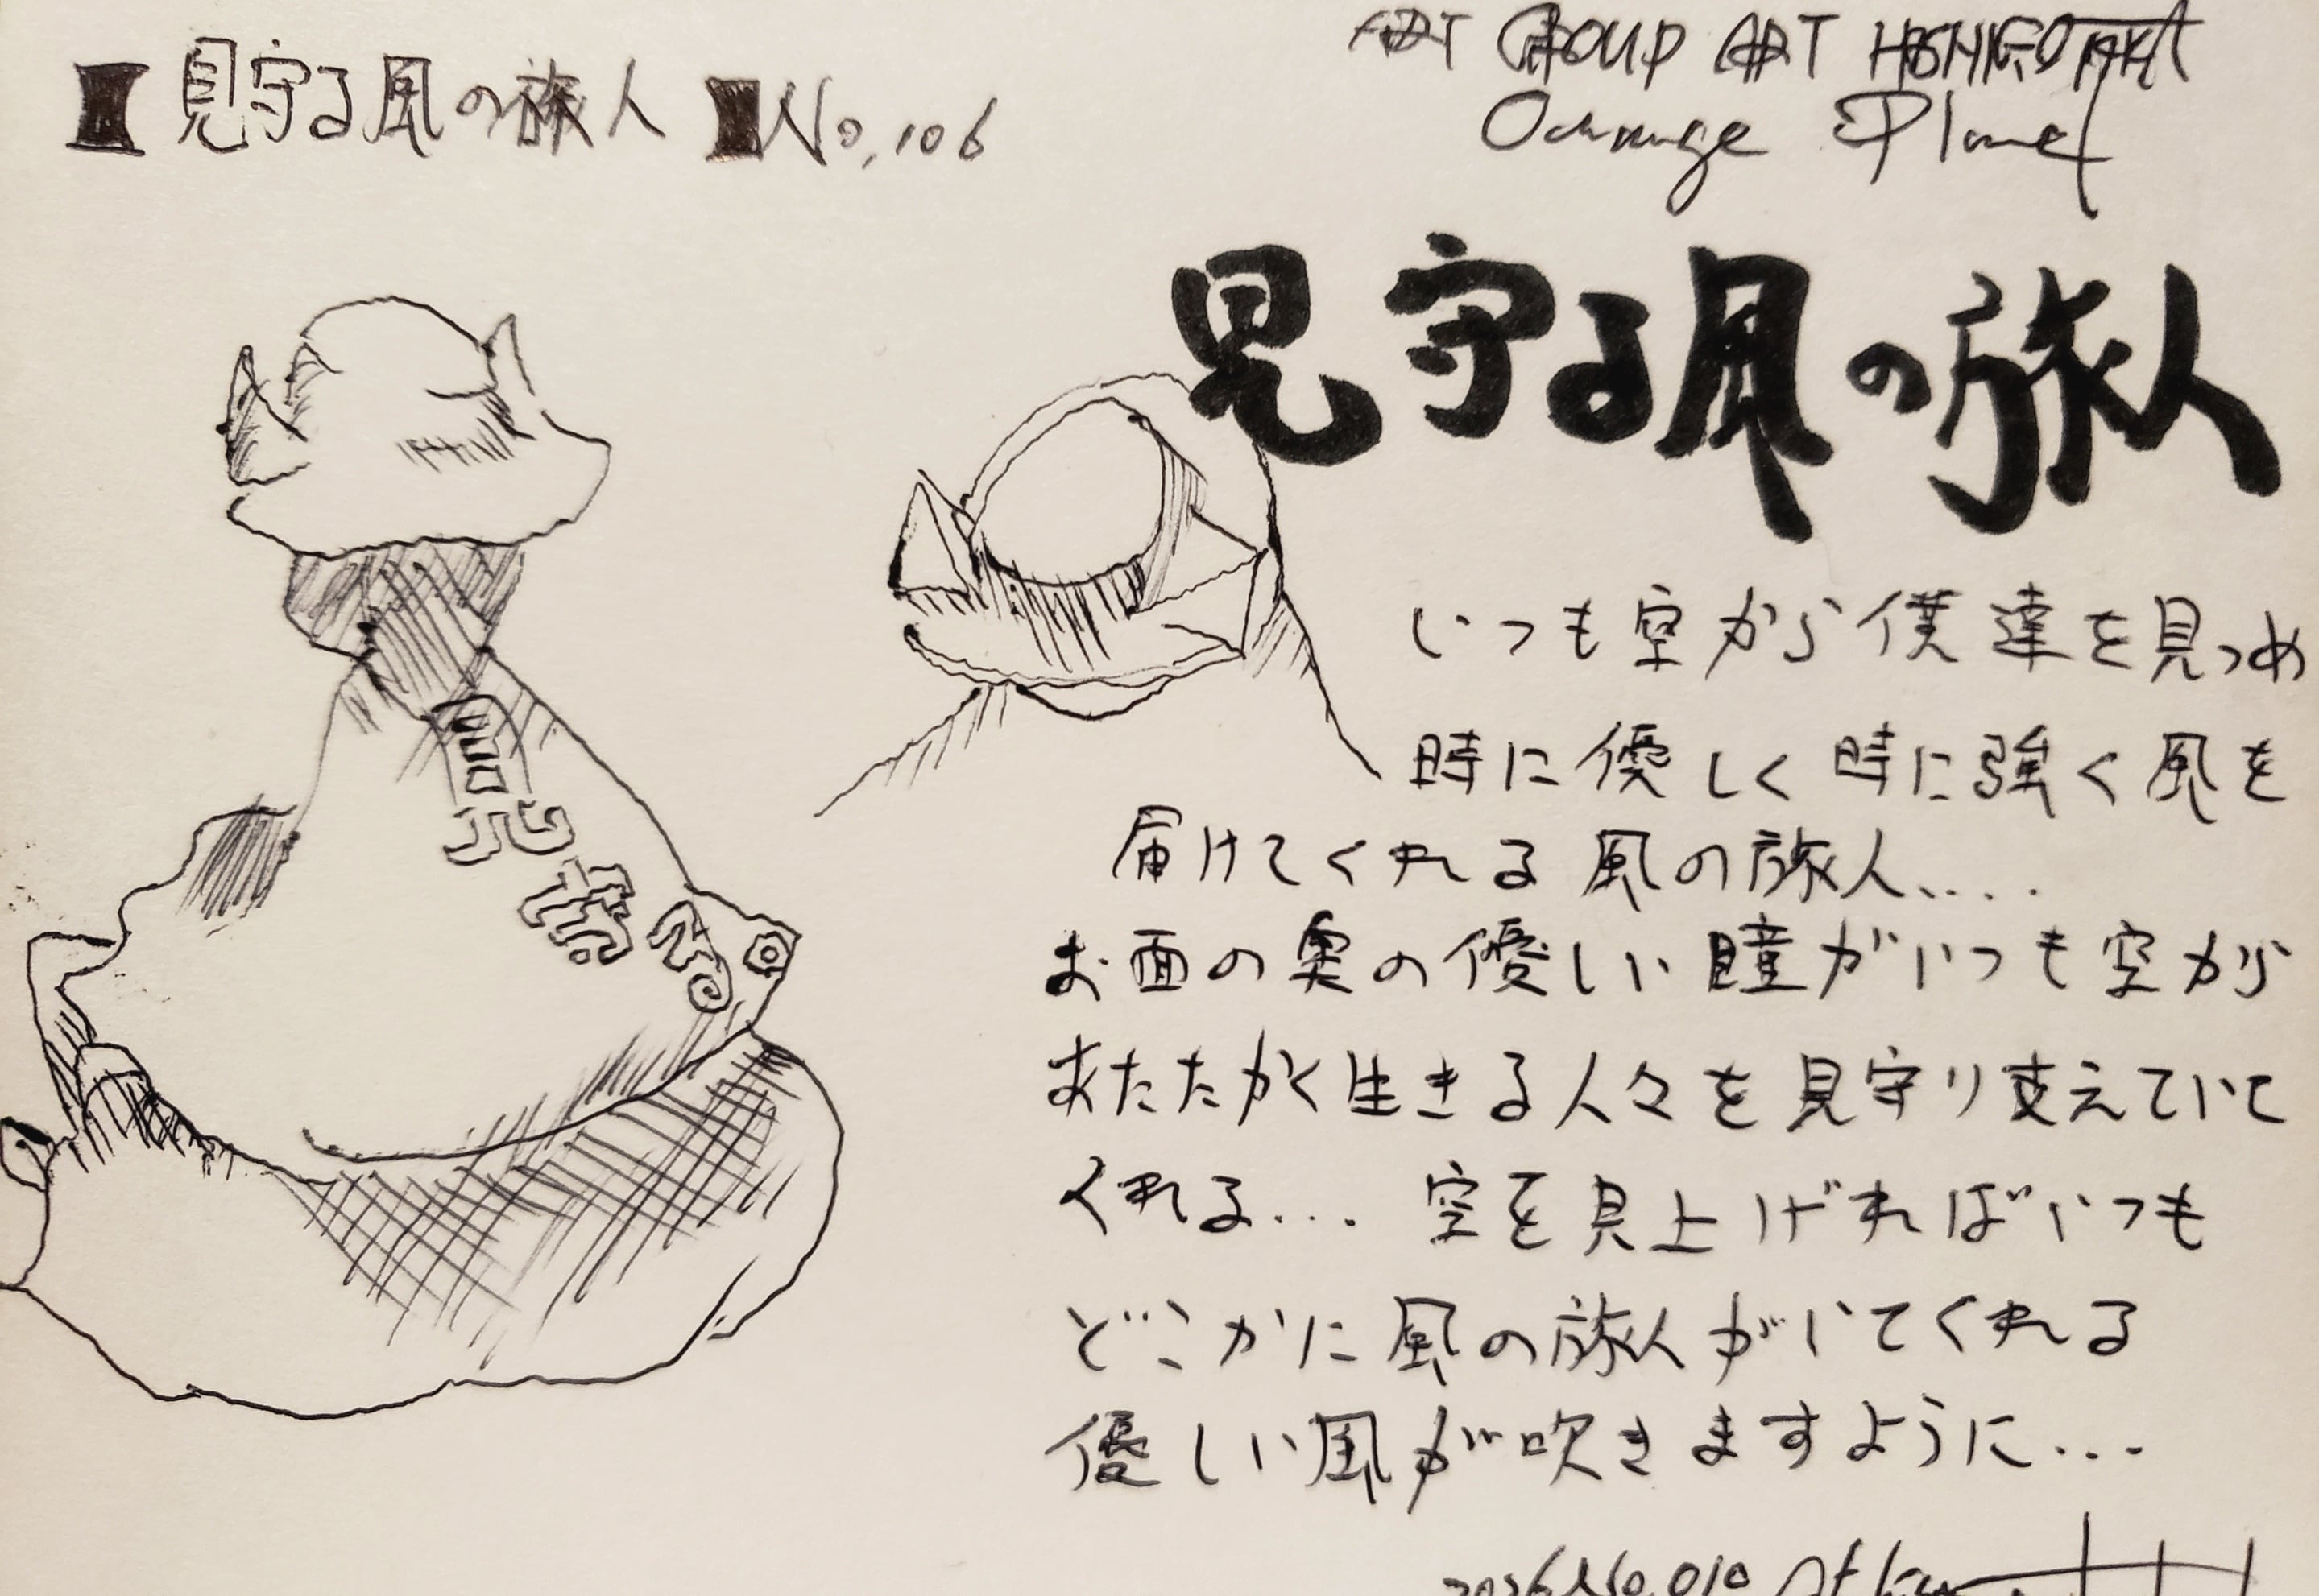 ■見守る風の旅人■No,106
ART GROUP ART
Orange Planet
見守る風の旅人
見守る
いつも空から僕達を見つめ
時に優しく時に強く風を
届けてくれる風の旅人....
お面の奥の優しい瞳がいつも空から
あたたかく生きる人々を見守り支えていて
くれる... 空を見上げればいつも
どこかに風の旅人がいてくれる
優しい風が吹きますように...